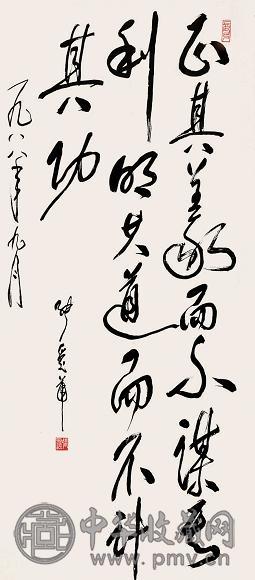 正其義而不謀其
利明其道而不計
其功
一九八八年九月
中华收藏网
www.pmv.cn